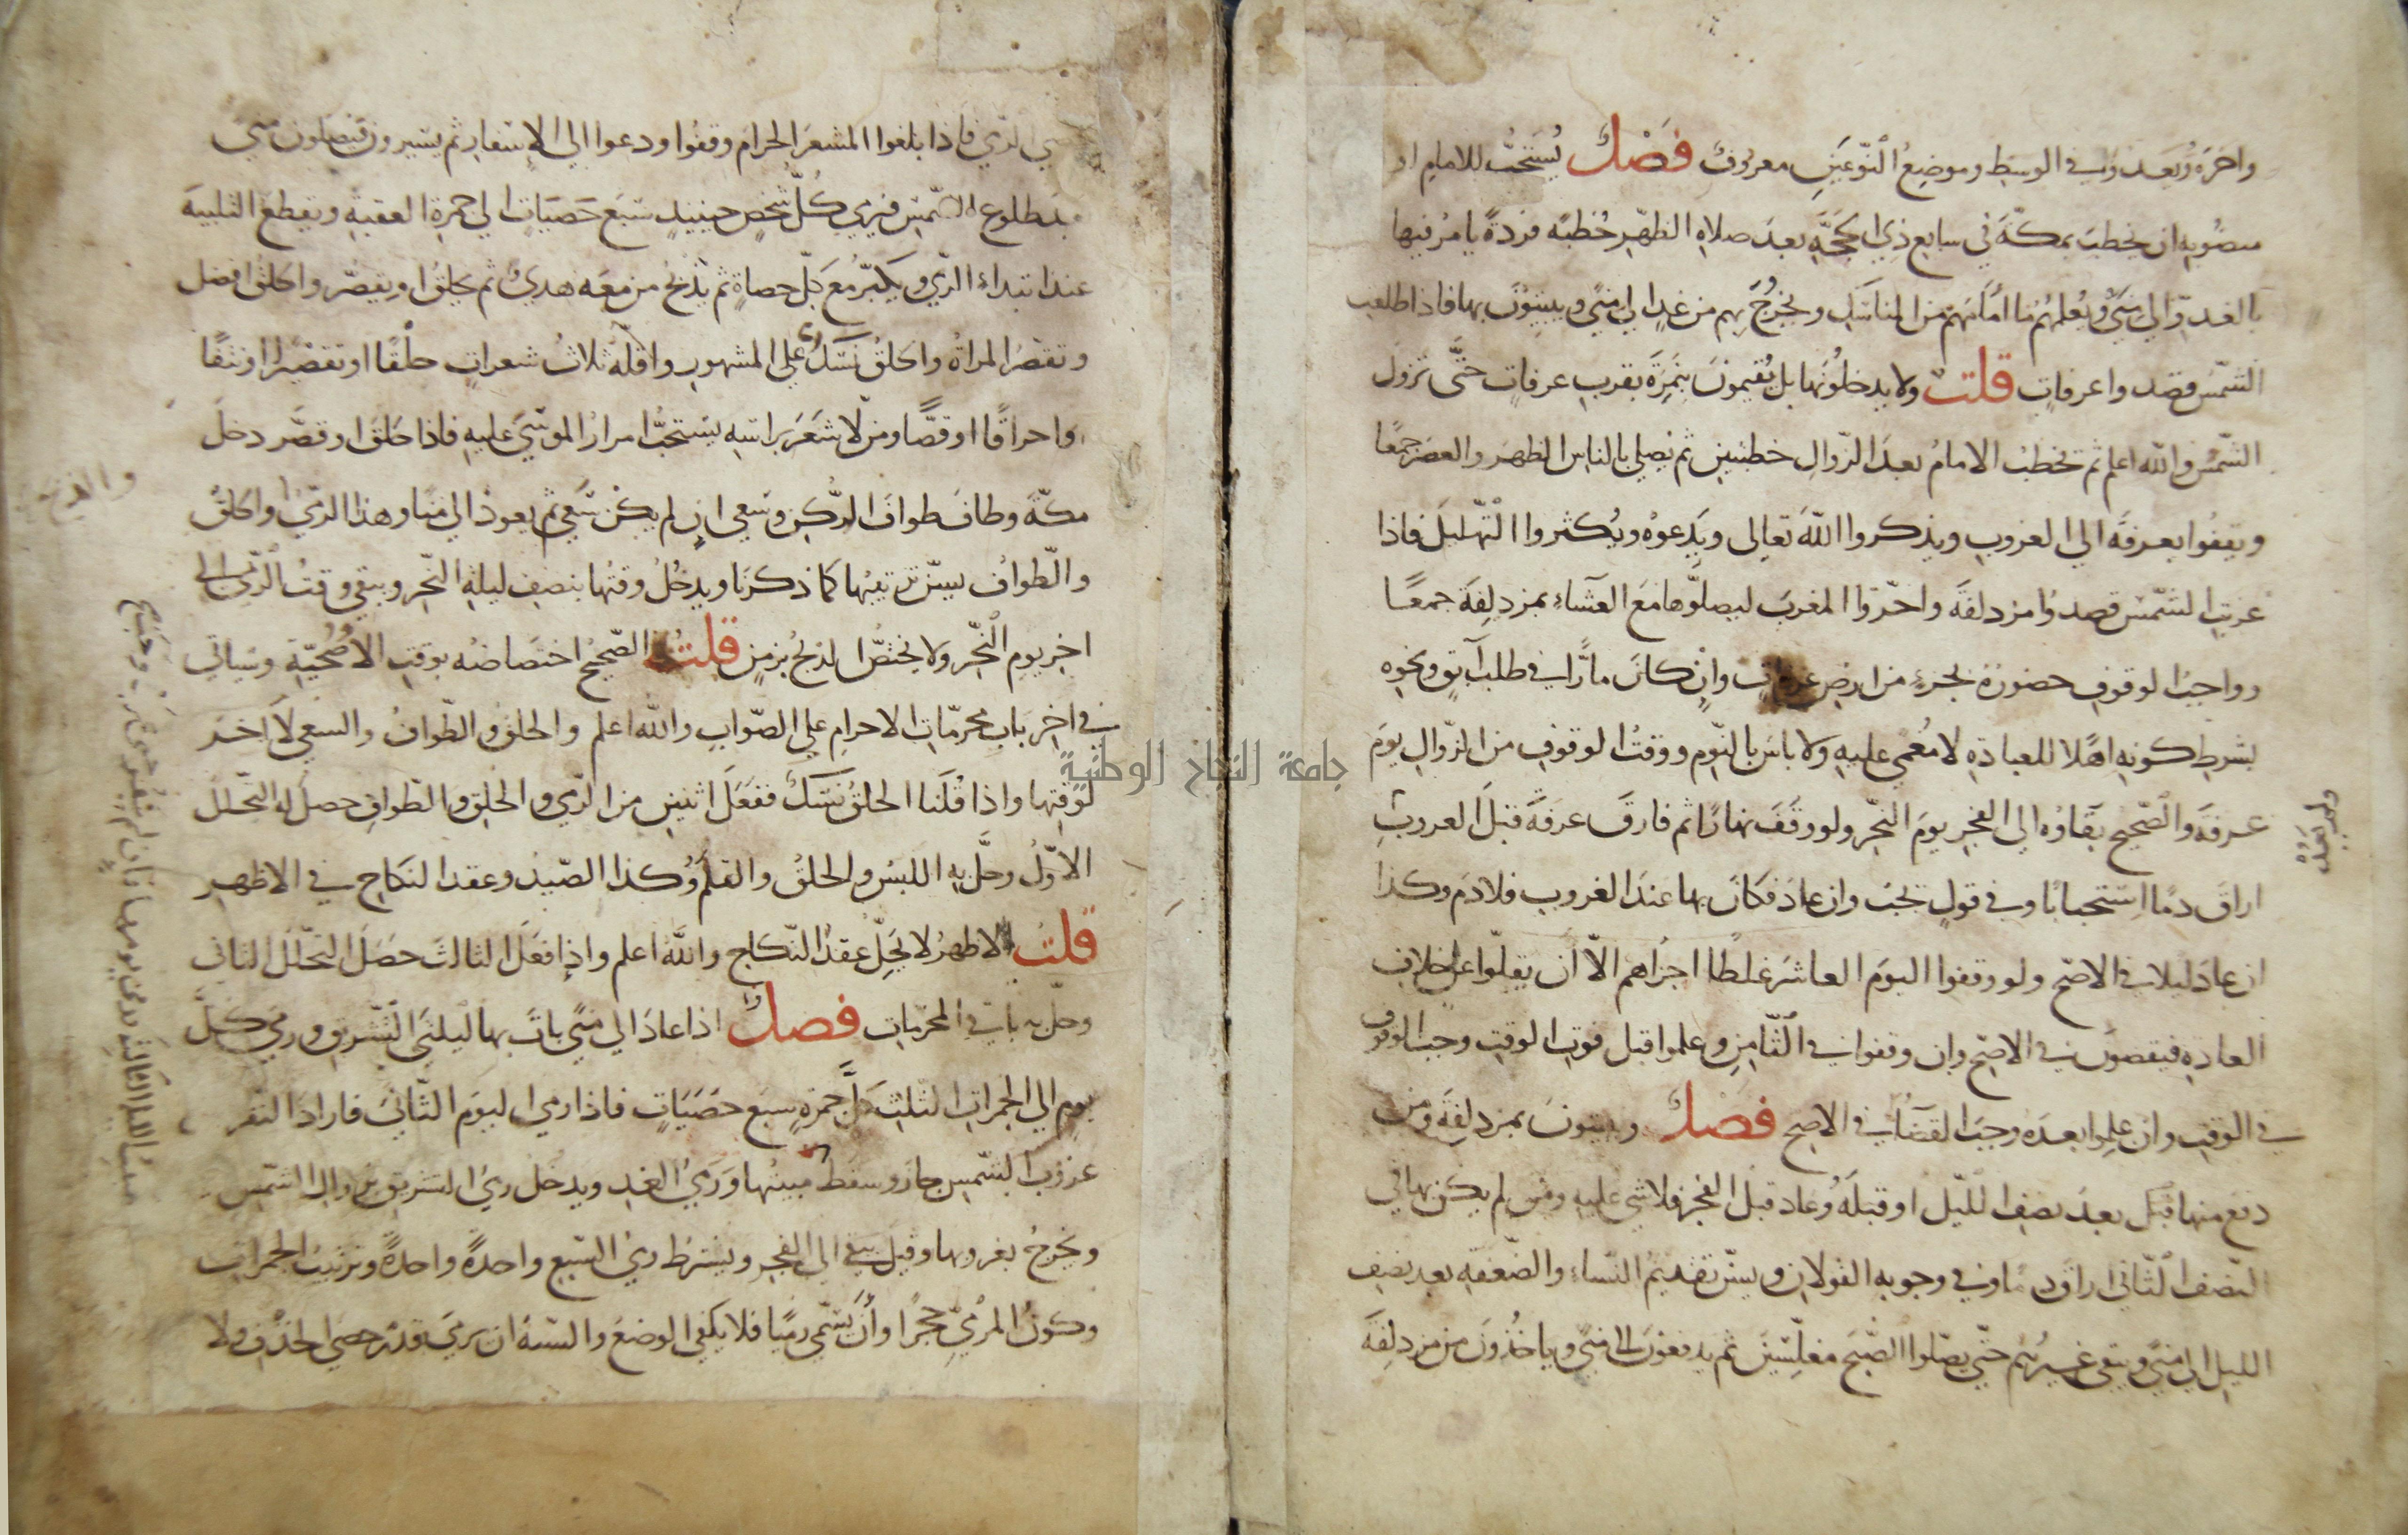 واخره ويعدو في الوسط وموضع النوعين معروف فصل يستحب للامام او
منصوبه ان يخطب بمكة في سابع ذي الحجة بعد صلاة الظهر خطبة فردة يامر فيها
بالغدو الى منى ويعلمهم ما امامهم من المناسك ويخرج بهم من غد الى منى ويبيتون بها فاذا طلعت
الشمس قصدوا عرفات قلت ولا يدخلونها بل يقيمون بنمرة بقرب عرفات حتى تزول
الشمس والله اعلم ثم يخطب الامام بعد الزوال خطبتين ثم يصلي بالناس الظهر والعصر جمعا
ويقفوا بعرفة الى الغروب ويذكروا الله تعالى ويدعوه ويكثروا التهليل فاذا
غربت الشمس قصدوا مزدلفة واخروا المغرب ليصلوها مع العشاء بمزدلفة جمعا
وواجب الوقوف حضوره بجزء من ارض عرفات وان كان مارا في طلب آبق ونحوه
بشرط كونه اهلا للعبادة لا مغمى عليه ولا باس بالنوم ووقت الوقوف من الزوال يوم
عرفة والصحيح بقاؤه الى الفجر يوم النحر ولو وقف نهارا ثم فارق عرفة قبل الغروب
ولم يعد
اراق دما استحبابا وفي قول يجب وان عاد فكان بها عند الغروب فلا دم وكذا
ان عاد ليلا في الاصح ولو وقفوا اليوم العاشر غلطا اجزاهم الا ان يقلوا على خلاف
العادة فيقضون في الاصح وان وقفوا في الثامن وعلموا قبل فوت الوقت وجب الوقوف
في الوقت وان علموا بعده وجب القضاء في الاصح فصل ويبيتون بمزدلفة ومن
دفع منها قبل بعد نصف الليل او قبله وعاد قبل الفجر فلا شي عليه ومن لم يكن بها في
النصف الثاني اراق دما وفي وجوبه القولان ويسن تقديم النساء والضعفة بعد نصف
الليل الى منى ويبقى غيرهم حتى يصلوا الصبح مغلسين ثم يدفعون الى منى وياخذون من مزدلفة
حصى الرمي فاذا بلغوا المشعر الحرام وقفوا ودعوا الى الاسفار ثم يسيرون فيصلون منى
بعد طلوع الشمس فيرمي كل شخص حينيذ سبع حصيات الى جمرة العقبة ويقطع التلبية
عند ابتداء الرمي ويكبر مع كل حصاة ثم يذبح من معه هدي ثم يحلق او يقصر والحلق افضل
وتقصر المراة والحلق نسك على المشهور واقله ثلاث شعرات حلقا او تقصيرا او نتفا
او احراقا او قصا ومن لا شعر براسه يستحب امرار الموسى عليه فاذا حلق او قصر دخل
مكة وطاف طواف الركن وسعى ان لم يكن سعى ثم يعود الى منا وهذا الرمي والحلق
والذبح
والطواف يسن ترتيبها كما ذكرنا ويدخل وقتها بنصف ليلة النحر ويبقى وقت الرمي الى
اخر يوم النحر ولا يختص الذبح بزمن قلت الصحيح اختصاصه بوقت الاضحية وسياتي
في اخر باب محرمات الاحرام على الصواب والله اعلم والحلق والطواف والسعي لا اخر
لوقتها واذا قلنا الحلق نسك ففعل اثنين من الرمي والحلق والطواف حصل له التحلل
الاول وحل به اللبس والحلق والقلم وكذا الصيد وعقد النكاح في الاظهر
قلت الاظهر لا يحل عقد النكاح والله اعلم واذا فعل الثالث حصل التحلل الثاني
وحل به باقي المحرمات فصل اذا عاد الى منى بات بها ليلتي التشريق ورمى كل
يوم الى الجمرات الثلث كل جمرة سبع حصيات فاذا رمى اليوم الثاني فاراد النفر قبل
غروب الشمس جاز وسقط مبيت
الليلة الثالثة ورمي يومها فان لم ينفر حتى غربت وجب
مبيتها ورمي الغد ويدخل رمي التشريق بزوال الشمس
ويخرج بغروبها وقيل يبقى الى الفجر ويشترط رمي السبع واحدة واحدة وترتيب الجمرات
وكون المرمي حجرا وان يسمى رميا فلا يكفي الوضع والسنة ان يرمي قدر حصى الخذف ولا
جامعة النجاح الوطنية